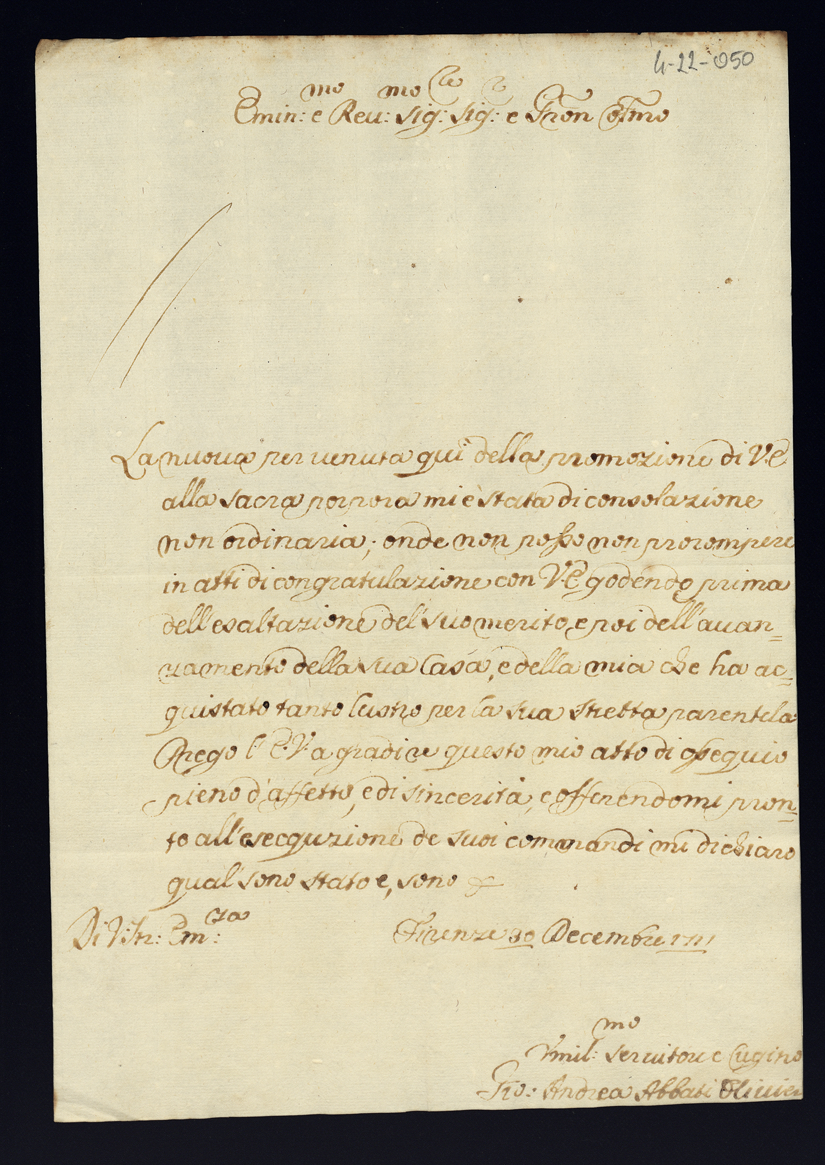 4-22-050
Emin:mo e Rev:mo sig:le sig:e e Pron Ossmo
La nuova per venuta qui della promozione di V.E.
alla sacra porpora mi è stata di consolazione
non ordinaria; onde non posso non prorompere
in atti di congratulazione con V.E. godendo prima
dell'esaltazione del suo merito, e poi dell'avan=
zamento della sua Casa, e della mia che ha ac=
quistato tanto lustro per la sua stretta parentela
Prego l'E.V. a gradire questo mio atto di ossequio
pieno d'affetto, e di sincerità, e offerendomi pron=
to all'esecquzione de suoi commandi mi dichiaro
qual sono stato e, sono
Di V: Str: Em:za
Firenze 30 Decembre 1711
Vmil:mo servitore e Cugino
Gio: Andrea Abbati Olivier